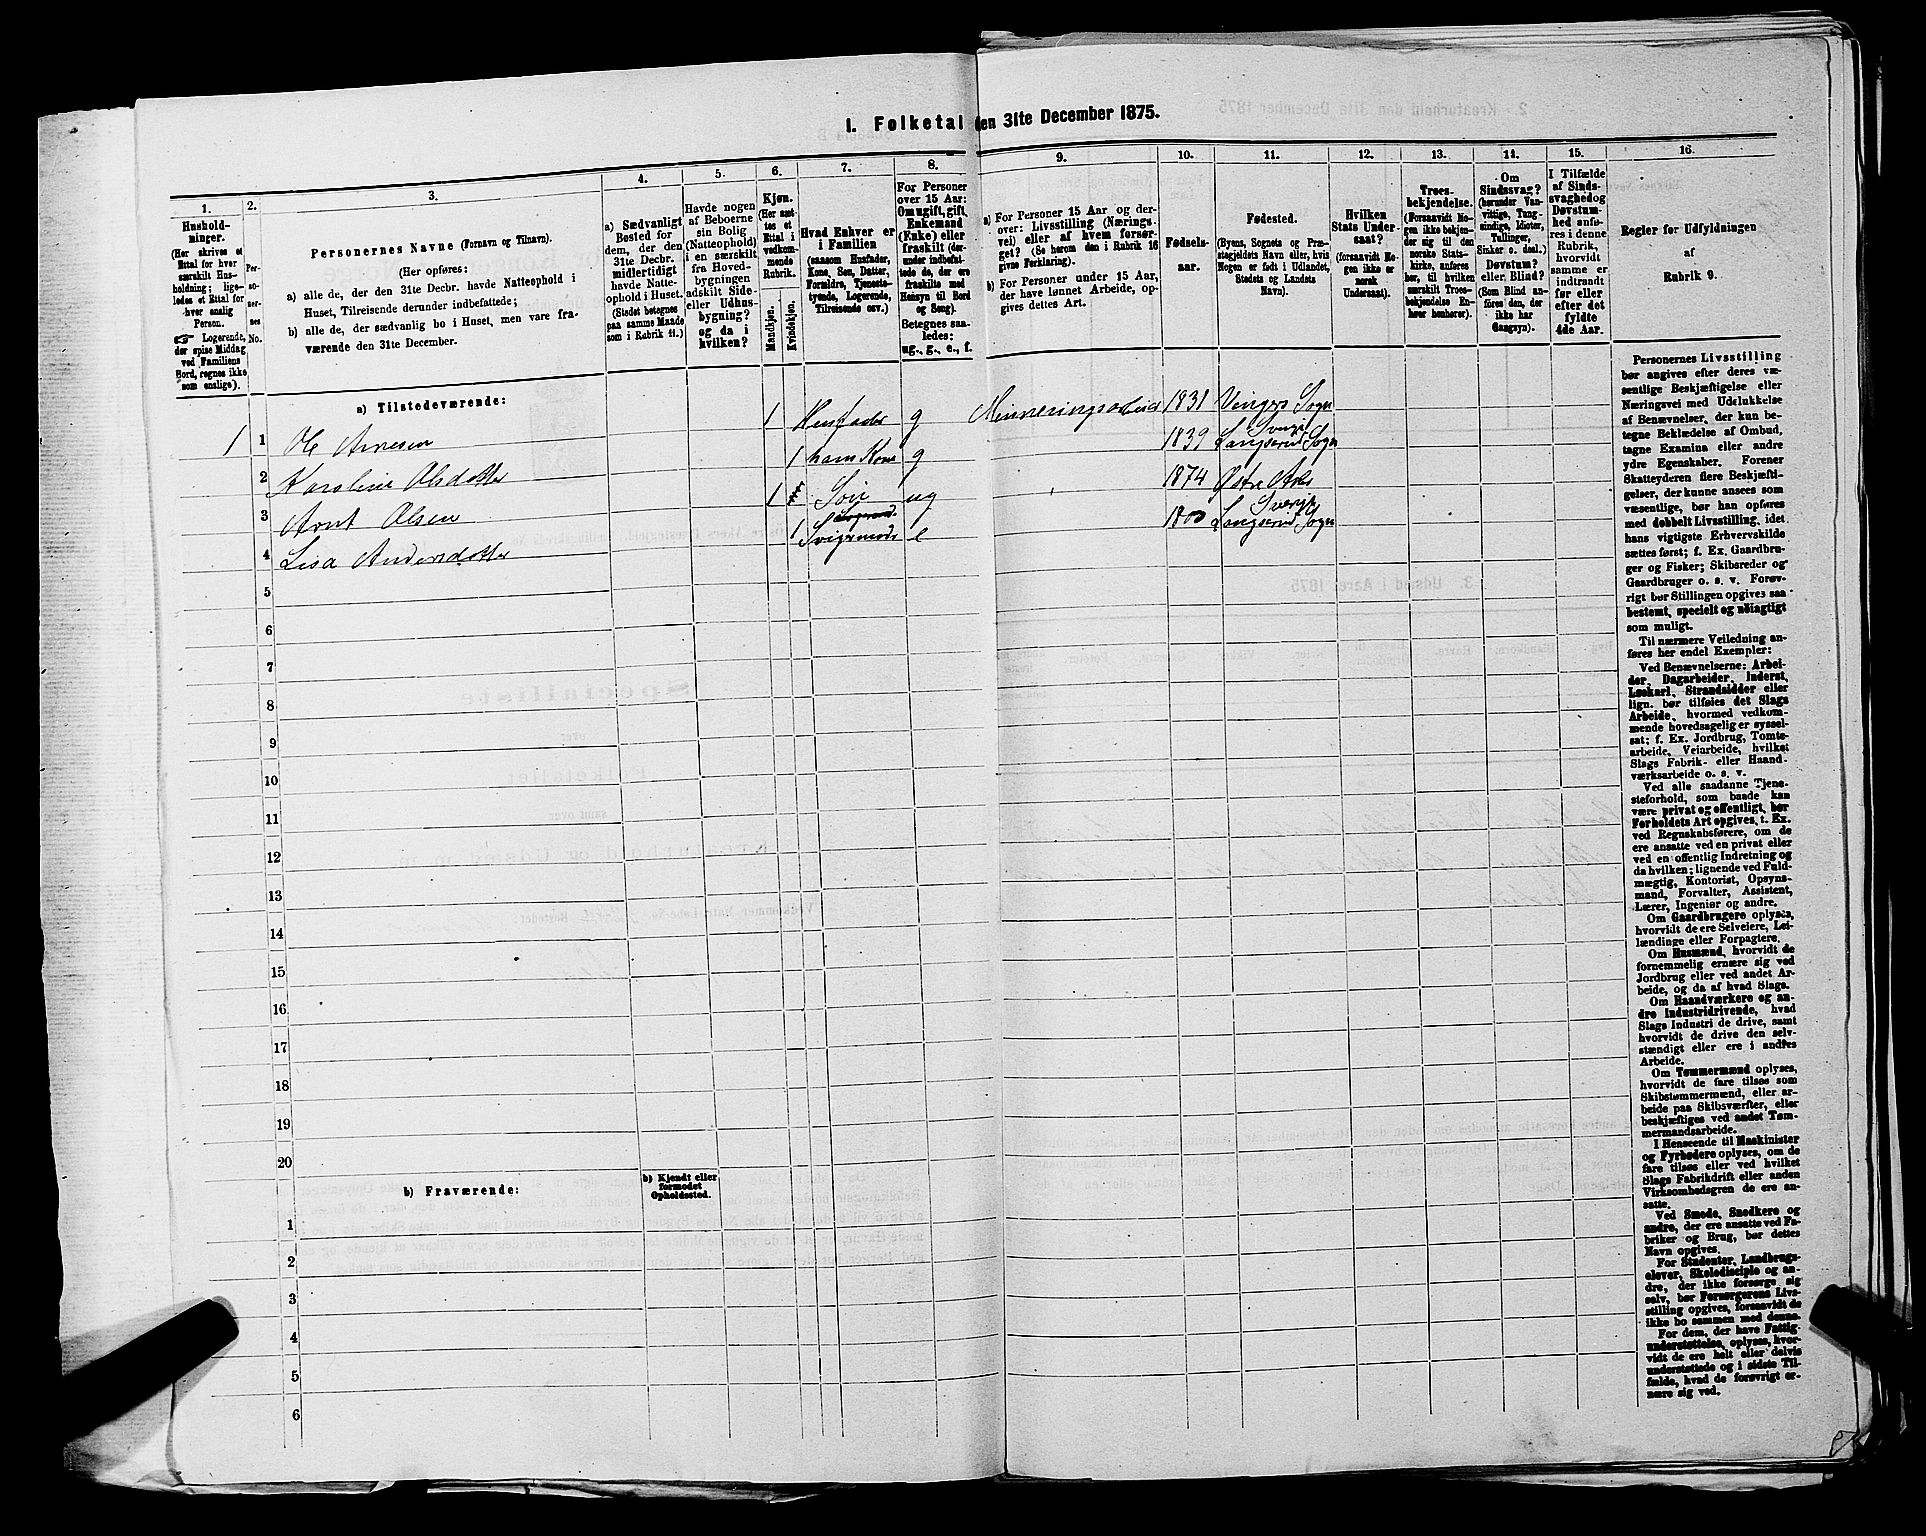 1. Folketal den 31te December 1875.
1.
2.
3.
4.
5.
6.
7.
8.
9.
10.
11.
12.
13.
14.
15.
16.
Hushold-
ninger.
(Her skrives et
Ettal for hver
særskilt Hus-
holdning; lige-
ledes et Ettal for
hver enslig
Person.
☞ Logerende,
der spise Middag
ved Familiens
Bord, regnes ikke
som enslige).
Per-
so-
ner-
nes
No.
Personernes Navne (Fornavn og Tilnavn).
(Her opføres:
a) alle de, der den 31te Decbr. havde Natteophold i
Huset, Tilreisende derunder indbefattede;
b) alle de, der sædvanlig bo i Huset, men vare fra-
værende den 31te December.
a) Sædvanligt
Bosted for
dem, der den
31te Decbr.
midlertidigt
havde Natte-
ophold i Huset.
(Stedet betegnes
paa samme Maade
som i Rubrik 11.)
Havde nogen
af Beboerne
sin Bolig
(Natteophold)
i en særskilt
fra Hoved-
bygningen
adskilt Side-
eller Udhus-
bygning?
og da i
hvilken?
Kjøn.
(Her sæt-
tes et
Ettal i
vedkom-
mende
Rubrik.
Mandkjøn.
Kvindekjøn.
Hvad Enhver er
i Familien
(saasom Husfader,
Kone, Søn, Datter,
Forældre, Tjeneste-
tyende, Logerende,
Tilreisende osv.)
For Personer
over 15 Aar:
Om ugift, gift,
Enkemand
(Enke) eller
fraskilt (der-
under indbefat-
tede de, der ere
fraskilte med
Hensyn til Bord
og Seng).
Betegnes saa-
ledes:
ug., g., e., f.
a) For Personer 15 Aar og der-
over: Livsstilling (Nærings-
vei) eller af hvem forsør-
get? (Se herom den i Rubrik 16
givne Forklaring).
b) For Personer under 15 Aar,
der have lønnet Arbeide, op-
gives dettes Art.
Fødsels-
aar.
Fødested.
(Byens, Sognets og Præ-
stegjeldets Navn eller, hvis
Nogen er født i Udlandet,
Stedets og Landets
Navn).
Hvilken
Stats Under-
saat?
(forsaavidt No-
gen ikke er
norsk
Undersaat).
Troes-
bekjendelse.
(Forsaavidt No-
gen ikke bekjen-
der sig til den
norske Stats-
kirke, anføres
her, til hvilken
særskilt Troes-
bekjendelse En-
hver henhører).
Om
Sindssvag?
(herunder Van-
vittige, Tung-
sindige, Idioter,
Tullinger,
Sinker o. desl.)
Døvstum?
eller Blind?
(Som Blind an-
føres den, der
ikke har
Gangsyn).
I Tilfælde
af Sinds-
svaghed og
Døvstum-
hed anfø-
res i denne
Rubrik,
hvorvidt
samme er
indtraadt
før eller
efter det
fyldte
4de Aar.
Regler for Udfyldningen
af
Rubrik 9.
a) Tilstedeværende:
1 1 Ole Arnesen 1 Husfader g 1831 Vingers Sogn
2 Karoline Olsdatter 1 hans Kone g 1839 Sverige Sogn
3 Arnt Olsen 1 Søn ug 1874 Østre Aker
4 Lisa Andersdatter 1 Svigermoder e Sverige Sogn
5
6
7
8
9
10
11
12
13
14
15
16
17
18
19
20
b) Fraværende:
b) Kjendt eller
formodet
Opholdssted.
1
2
3
4
5
6
Personernes Livsstilling
bør angives efter deres væ-
sentlige Beskjæftigelse eller
Næringsvei med Udelukkelse
af Benævnelser, der kun be-
tegne Beklædelse af Ombud,
tagne Examina eller andre
ydre Egenskaber. Forener
Skatteyderen flere Beskjæfti-
gelser, der kunne ansees som
væsentlige, bør han opføres
med dobbelt Livsstilling, idet
hans vigtigste Erhvervskilde
sættes først; f. Ex. Gaardbru-
ger og Fisker; Skibsreder og
Gaardbruger o. s. v. Forøv-
rigt bør Stillingen opgives saa
bestemt, specielt og nöiagtigt
som muligt.
Til nærmere Veiledning an-
føres her endel Exempler:
Ved Benævnelserne: Arbei-
der, Dagarbeider, Inderst,
Løskarl, Strandsidder eller
lign. bør tilføies det Slags
Arbeide, hvormed vedkom-
mende hovedsagelig er syssel-
sat; f. Ex. Jordbrug, Tomte-
arbeide, Veiarbeide, hvilket
Slags Fabrik- eller Haand-
værksarbeide o. s. v.
Ved alle saadanne Tjene-
steforhold, som baade kan
være privat og offentligt, bør
Forholdets Art opgives, t. Ex.
ved Regnskabsførere, om de
ere ansatte ved en privat eller
ved en offentlig Indretning og
da hvilken; lignende ved Fuld-
mægtig, Kontorist, Opsyns-
mand, Forvalter, Assistent,
Lærer, Ingeniør og andre.
Om Gaardbrugere oplyses,
hvorvidt de ere Selveiere, Lei-
lændinge eller Forpagtere.
Om Husmænd, hvorvidt de
fornemmelig ernære sig ved
Jordbrug eller ved andet Ar-
beide, og da af hvad Slags.
Om Haandværkere og an-
dre Industridrivende, hvad
Slags Industri de drive, samt
hvorvidt de drive den selv-
stændigt eller ere i andres
Arbeide.
Om Tømmermænd oplyses,
hvorvidt de fare tilsøs som
Skibstømmermænd, eller ar-
beide paa Skibsværfter, eller
beskjæftiges ved andet Tøm-
mermandsarbeide.
I Henseende til Maskinister
og Fyrbødere oplyses, om de
fare tilsøs eller ved hvilket
Slags Fabrikdrift eller anden
Virksomhedsgren de ere an-
satte.
Ved Smede, Snedkere og
andre, der ere ansatte ved Fa-
briker og Brug, bør dettes
Navn opgives.
For Studenter, Landbrugs-
elever, Skoledisciple og an-
dre, der ikke forsørge sig
selv, bør Forsørgerens Livs-
stilling opgives, forsaavidt de
ikke bo sammen med denne.
For dem, der have Fattig-
understøttelse, oplyses, hvor-
vidt de ere helt eller delvis
understøttede og i sidste Til-
fælde, hvad de forøvrigt er-
nære sig ved.